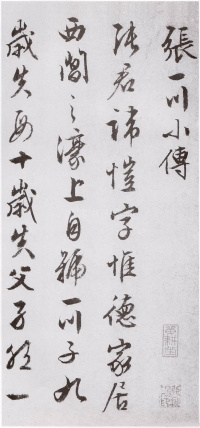 張一川小傳
張君諱愷字惟德家居
西閶之濠上自號一川子九
歲失母十歲失父孑然一